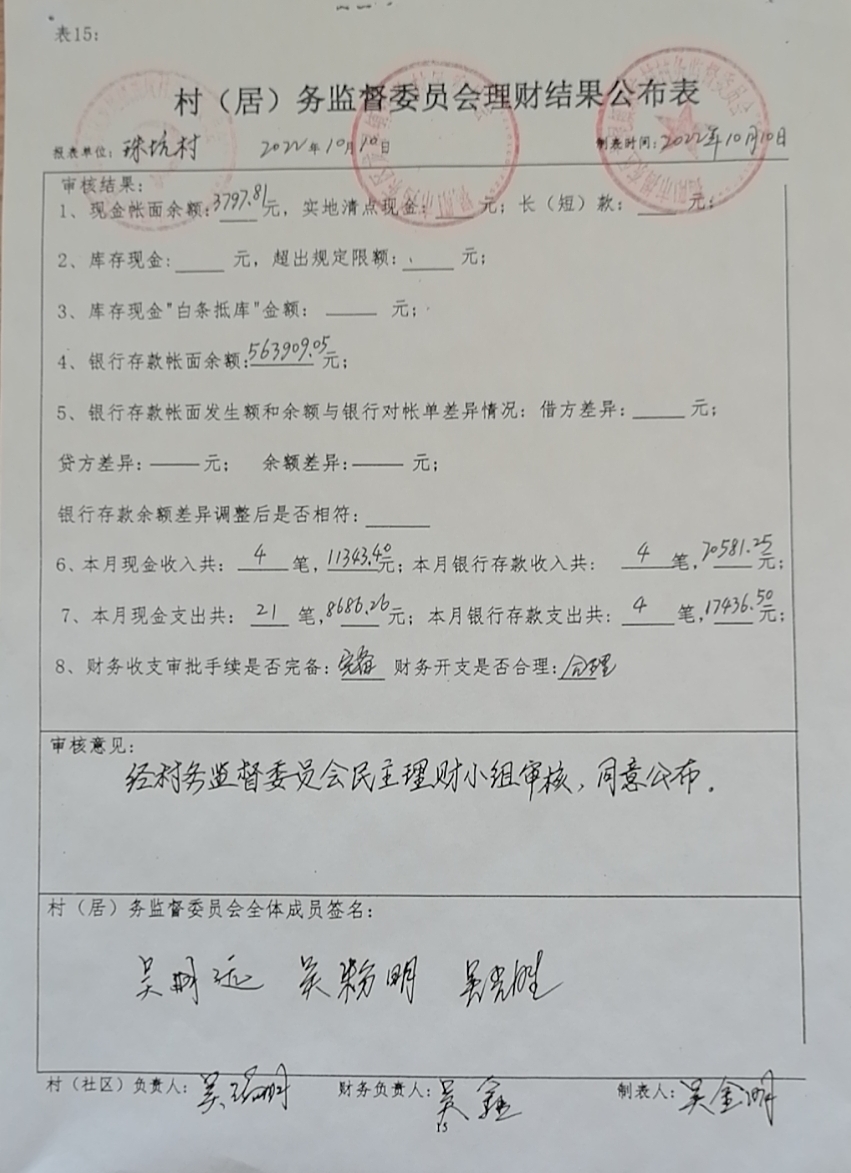 表15:
村（居）务监督委员会理财结果公布表
报表单位: 珠坑村 2022年10月10日 制表时间: 2022年10月10日
审核结果:
1、现金帐面余额: 3797.81元, 实地清点现金: ____元; 长（短）款: ____元;
2、库存现金: ____元, 超出规定限额: ____元;
3、库存现金"白条抵库"金额: ____元;
4、银行存款帐面余额: 563909.05元;
5、银行存款帐面发生额和余额与银行对帐单差异情况: 借方差异: ____元;
贷方差异: ____元; 余额差异: ____元;
银行存款余额差异调整后是否相符: ____
6、本月现金收入共: 4笔, 11343.40元; 本月银行存款收入共: 4笔, 70581.25元;
7、本月现金支出共: 21笔, 8686.26元; 本月银行存款支出共: 4笔, 17436.50元;
8、财务收支审批手续是否完备: 完备 财务开支是否合理: 合理
审核意见:
经村务监督委员会民主理财小组审核、同意公布.
村（居）务监督委员会全体成员签名:
吴 明 吴光胜
村（社区）负责人: 吴 明 财务负责人: 吴鑫 制表人: 吴金明
15